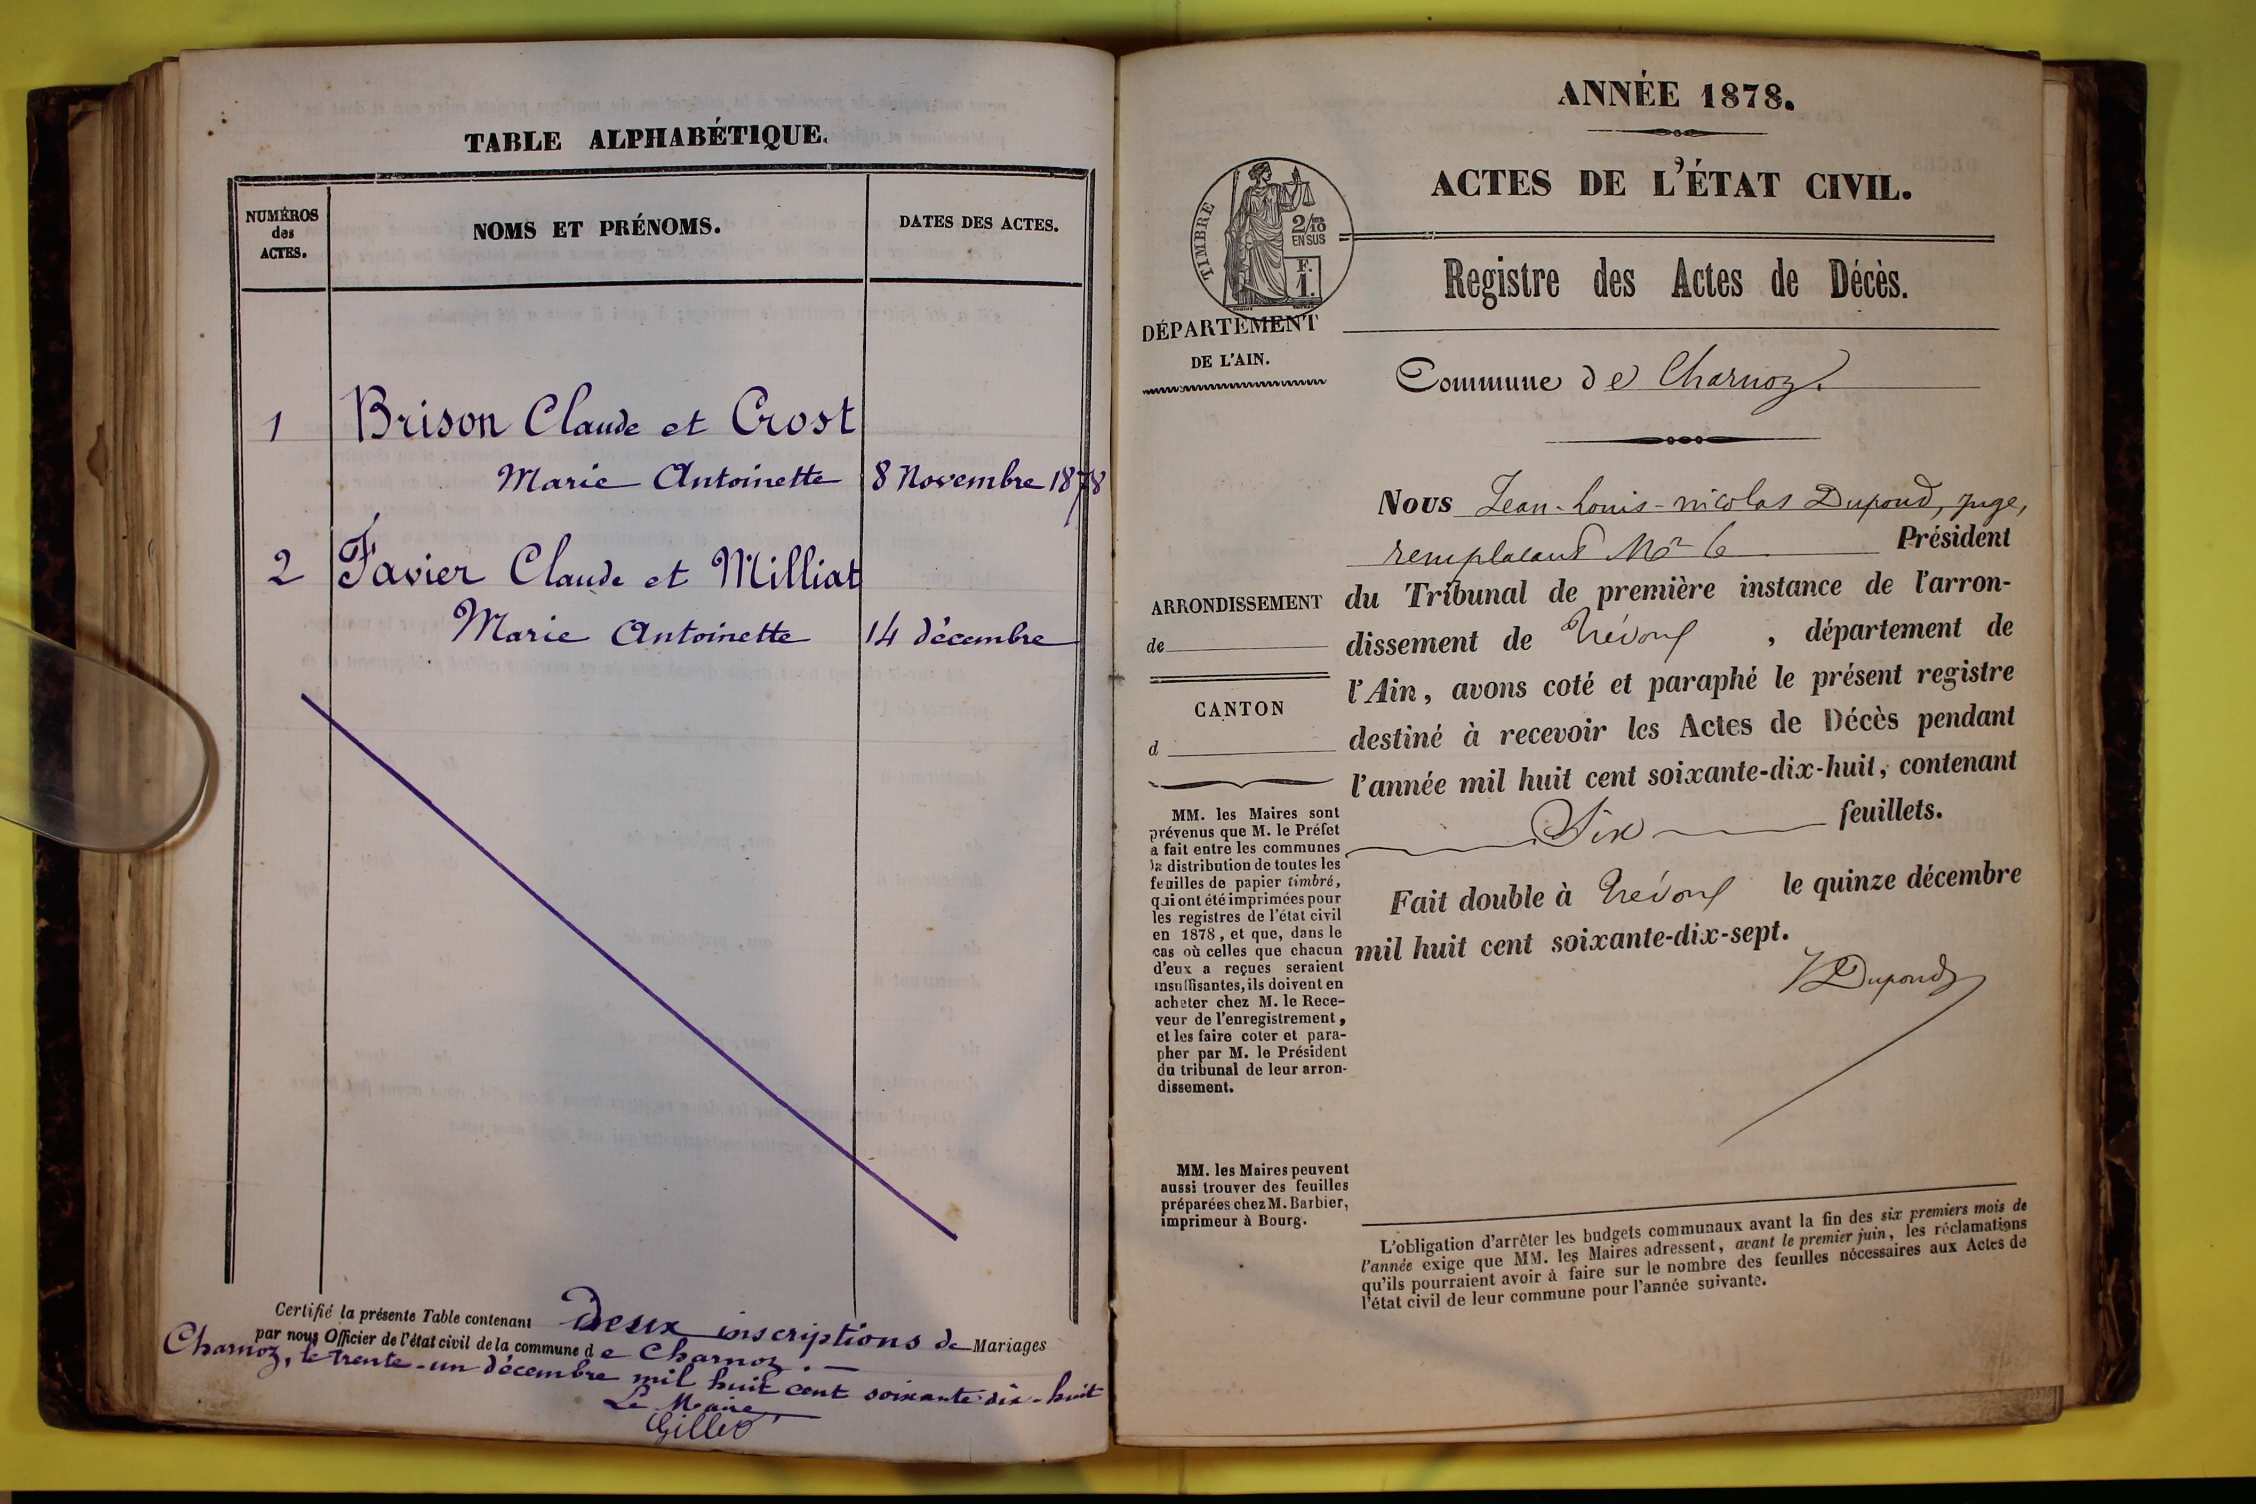 TABLE ALPHABÉTIQUE.
NUMÉROS
des
ACTES.
NOMS ET PRÉNOMS.
DATES DES ACTES.
1 Brison Claude et Crost
Marie Antoinette 8 Novembre 1878
2 Favier Claude et Milliat
Marie Antoinette 14 décembre
Certifié la présente Table contenant Deux inscriptions de Mariages
par nous Officier de l'état civil de la commune de Charnoz. —
Charnoz, le trente-un décembre mil huit cent soixante-dix-huit
Le Maire,
ANNÉE 1878.
ACTES DE L'ÉTAT CIVIL.
Registre des Actes de Décès.
TIMBRE
2/10
EN SUS
F.
1.
DÉPARTEMENT
DE L'AIN.
Commune de Charnoz.
Nous Jean-Louis-Nicolas Dupond, juge,
remplacant Mr le Président
du Tribunal de première instance de l'arron-
dissement de Trévoux, département de
l'Ain, avons coté et paraphé le présent registre
destiné à recevoir les Actes de Décès pendant
l'année mil huit cent soixante-dix-huit, contenant
Six feuillets.
Fait double à Trévoux le quinze décembre
mil huit cent soixante-dix-sept.
Dupond
ARRONDISSEMENT
de
CANTON
d
MM. les Maires sont
prévenus que M. le Préfet
a fait entre les communes
la distribution de toutes les
feuilles de papier timbré,
qui ont été imprimées pour
les registres de l'état civil
en 1878, et que, dans le
cas où celles que chacun
d'eux a reçues seraient
insuffisantes, ils doivent en
acheter chez M. le Rece-
veur de l'enregistrement,
et les faire coter et para-
pher par M. le Président
du tribunal de leur arron-
dissement.
MM. les Maires peuvent
aussi trouver des feuilles
préparées chez M. Barbier,
imprimeur à Bourg.
L'obligation d'arrêter les budgets communaux avant la fin des six premiers mois de
l'année exige que MM. les Maires adressent, avant le premier juin, les réclamations
qu'ils pourraient avoir à faire sur le nombre des feuilles nécessaires aux Actes de
l'état civil de leur commune pour l'année suivante.